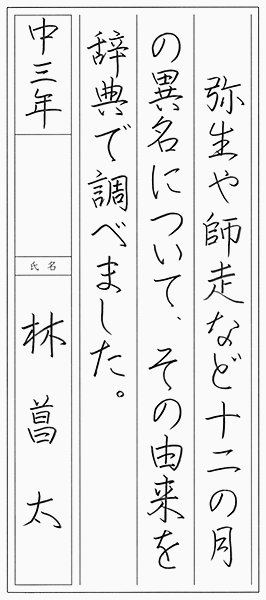 弥生や師走など十二の月
の異名について、その由来を
辞典で調べました。
中三年
氏名
林菖太